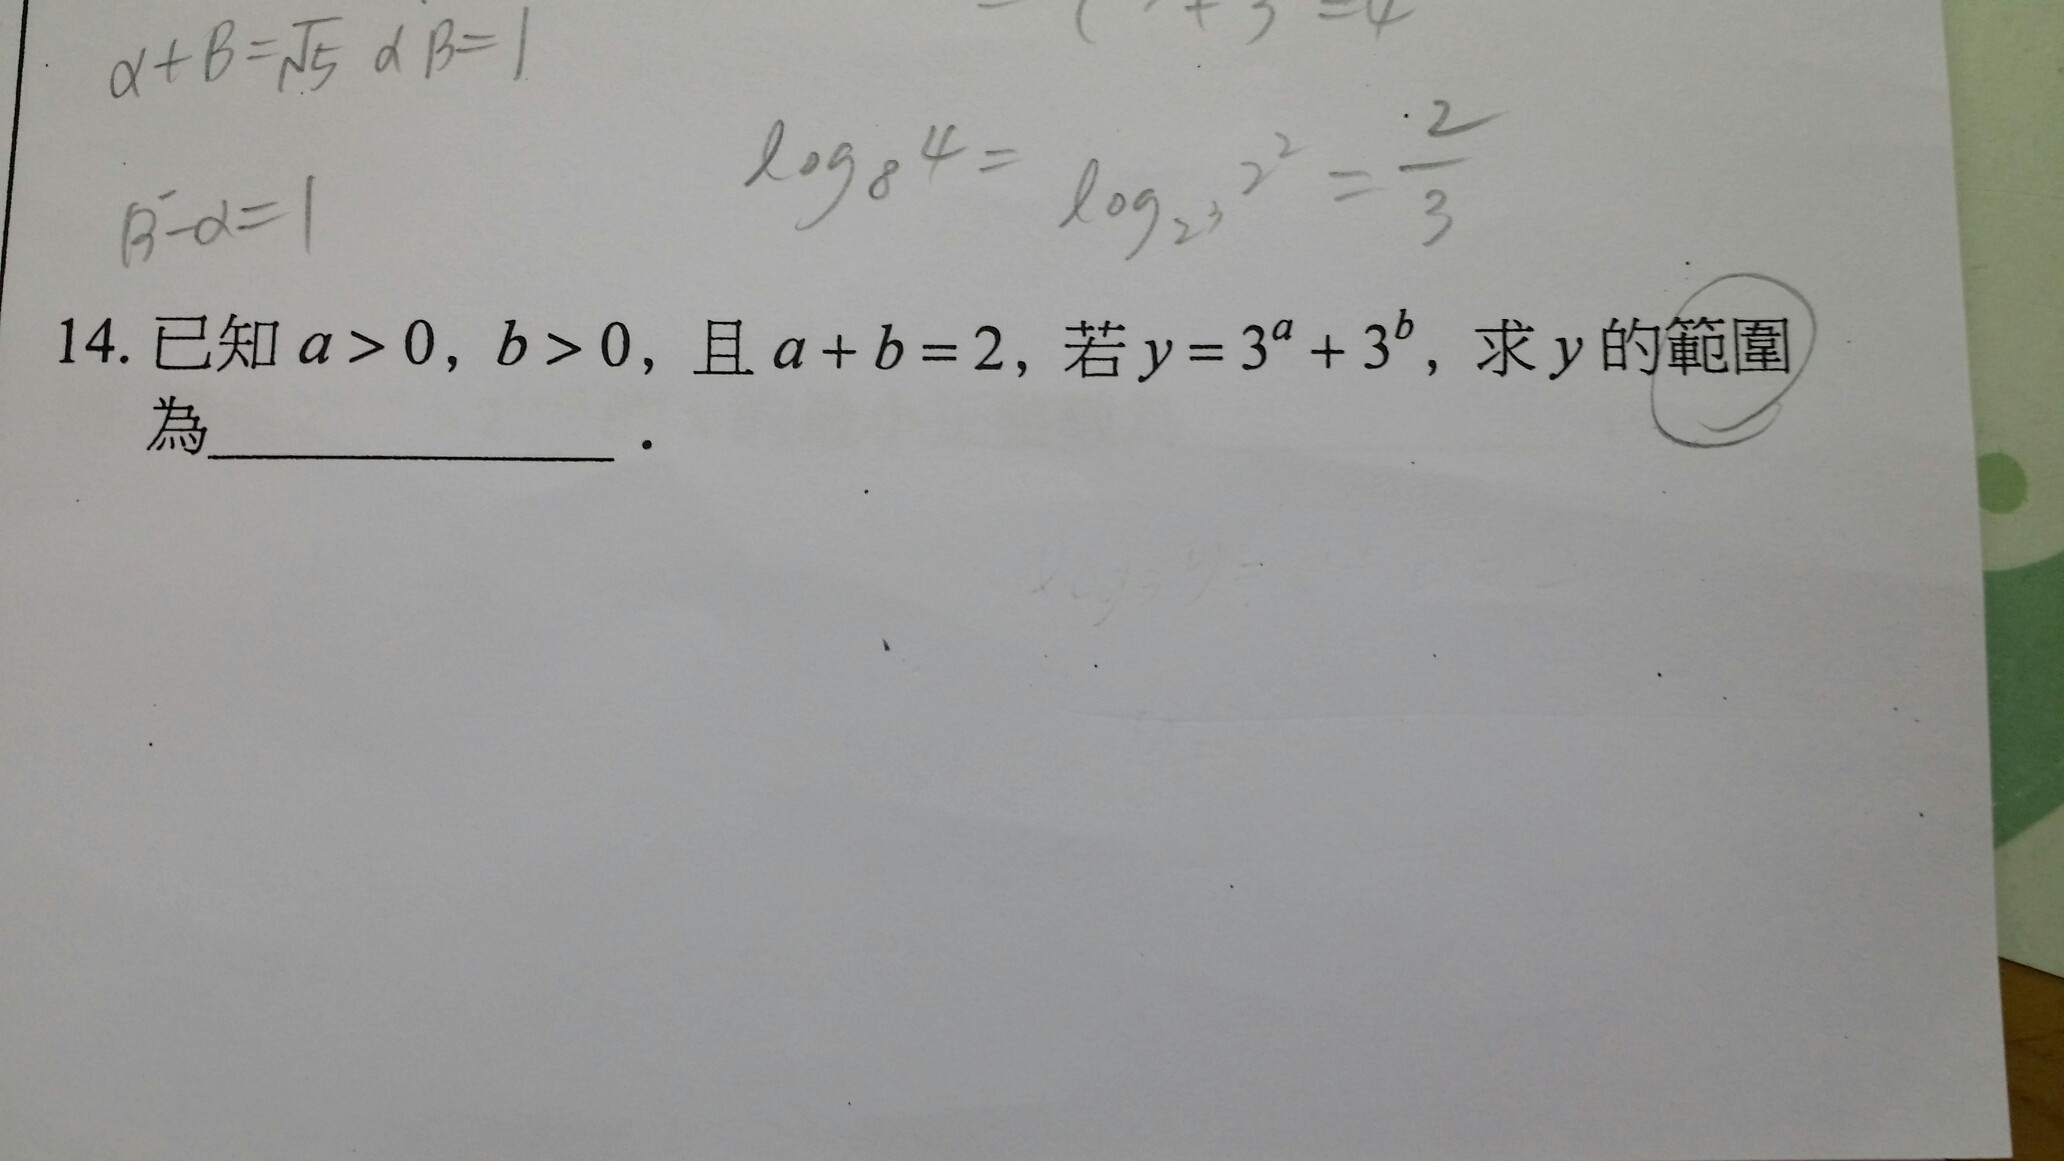 α+β=√5 αβ=1
log₈4= log_{2³}2²=2/3
β-α=1
14. 已知 a > 0, b > 0, 且 a + b = 2, 若 y = 3ᵃ + 3ᵇ, 求 y 的範圍
為____________.